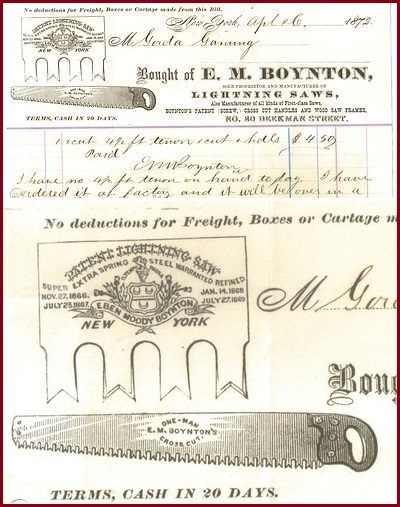 No deductions for Freight, Boxes or Cartage made from this Bill.
New-York, Apl 26, 1872
M Gorda Ganung
PATENT LIGHTNING SAW
NEW YORK
Bought of E. M. BOYNTON,
SOLE PROPRIETOR AND MANUFACTURER OF
LIGHTNING SAWS,
Also Manufacturer of all kinds of First-class Saws,
BOYNTON'S PATENT SCREW, CROSS CUT HANDLES AND WOOD SAW FRAMES,
NO. 80 BEEKMAN STREET.
TERMS, CASH IN 20 DAYS.
1 6 cut 4 ft tenon 1 cut & hdls $ 4.50
Paid
E M Boynton
I have no 4 ft tenon on hand to day. I have
ordered it at factory and it will be over in a
No deductions for Freight, Boxes or Cartage m
PATENT LIGHTNING SAW
EXTRA SPRING STEEL WARRANTED REFINED
SUPER
NOV. 27. 1866. JAN. 14. 1868
JULY 23. 1867. JULY 27. 1869
EBEN MOODY BOYNTON
NEW YORK
M Gord
Boug
ONE-MAN
E. M. BOYNTON'S
CROSS CUT.
TERMS, CASH IN 20 DAYS.